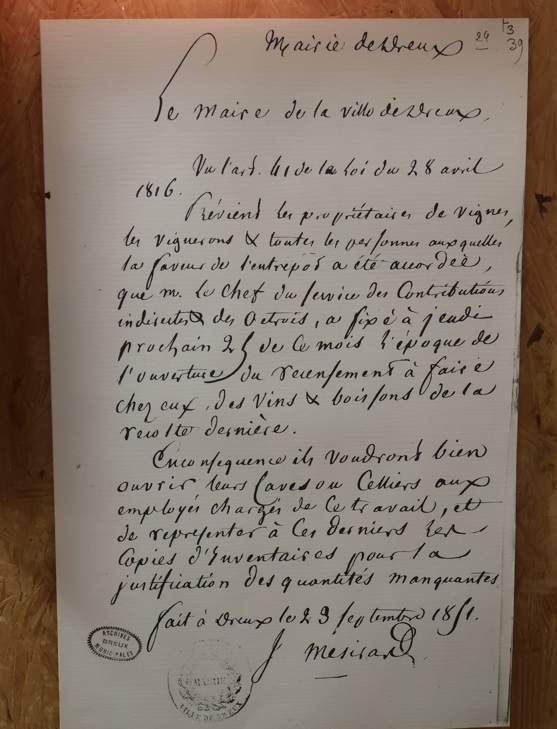 Mairie de Dreux
29
39
Le Maire de la ville de Dreux,
Vu l'art. 41 de la Loi du 28 avril
1816.
Prévient les propriétaires de vignes,
les vignerons & toutes les personnes auxquelles
la faveur de l'entrepôt a été accordée,
que m. le chef du service des Contributions
indirectes & des Octrois, a fixé à jeudi
prochain 25 de ce mois l'époque de
l'ouverture du recensement à faire
chez eux, des vins & boissons de la
recolte dernière.
Enconsequence ils voudront bien
ouvrir leurs Caves ou Celliers aux
employés chargés de ce travail, et
de representer à ces derniers les
Copies d'Inventaires pour la
justification des quantités manquantes
fait à Dreux le 23 septembre 1851.
Mesirard
ARCHIVES
DREUX
MUNICIPALES
MAIRIE
VILLE DE DREUX